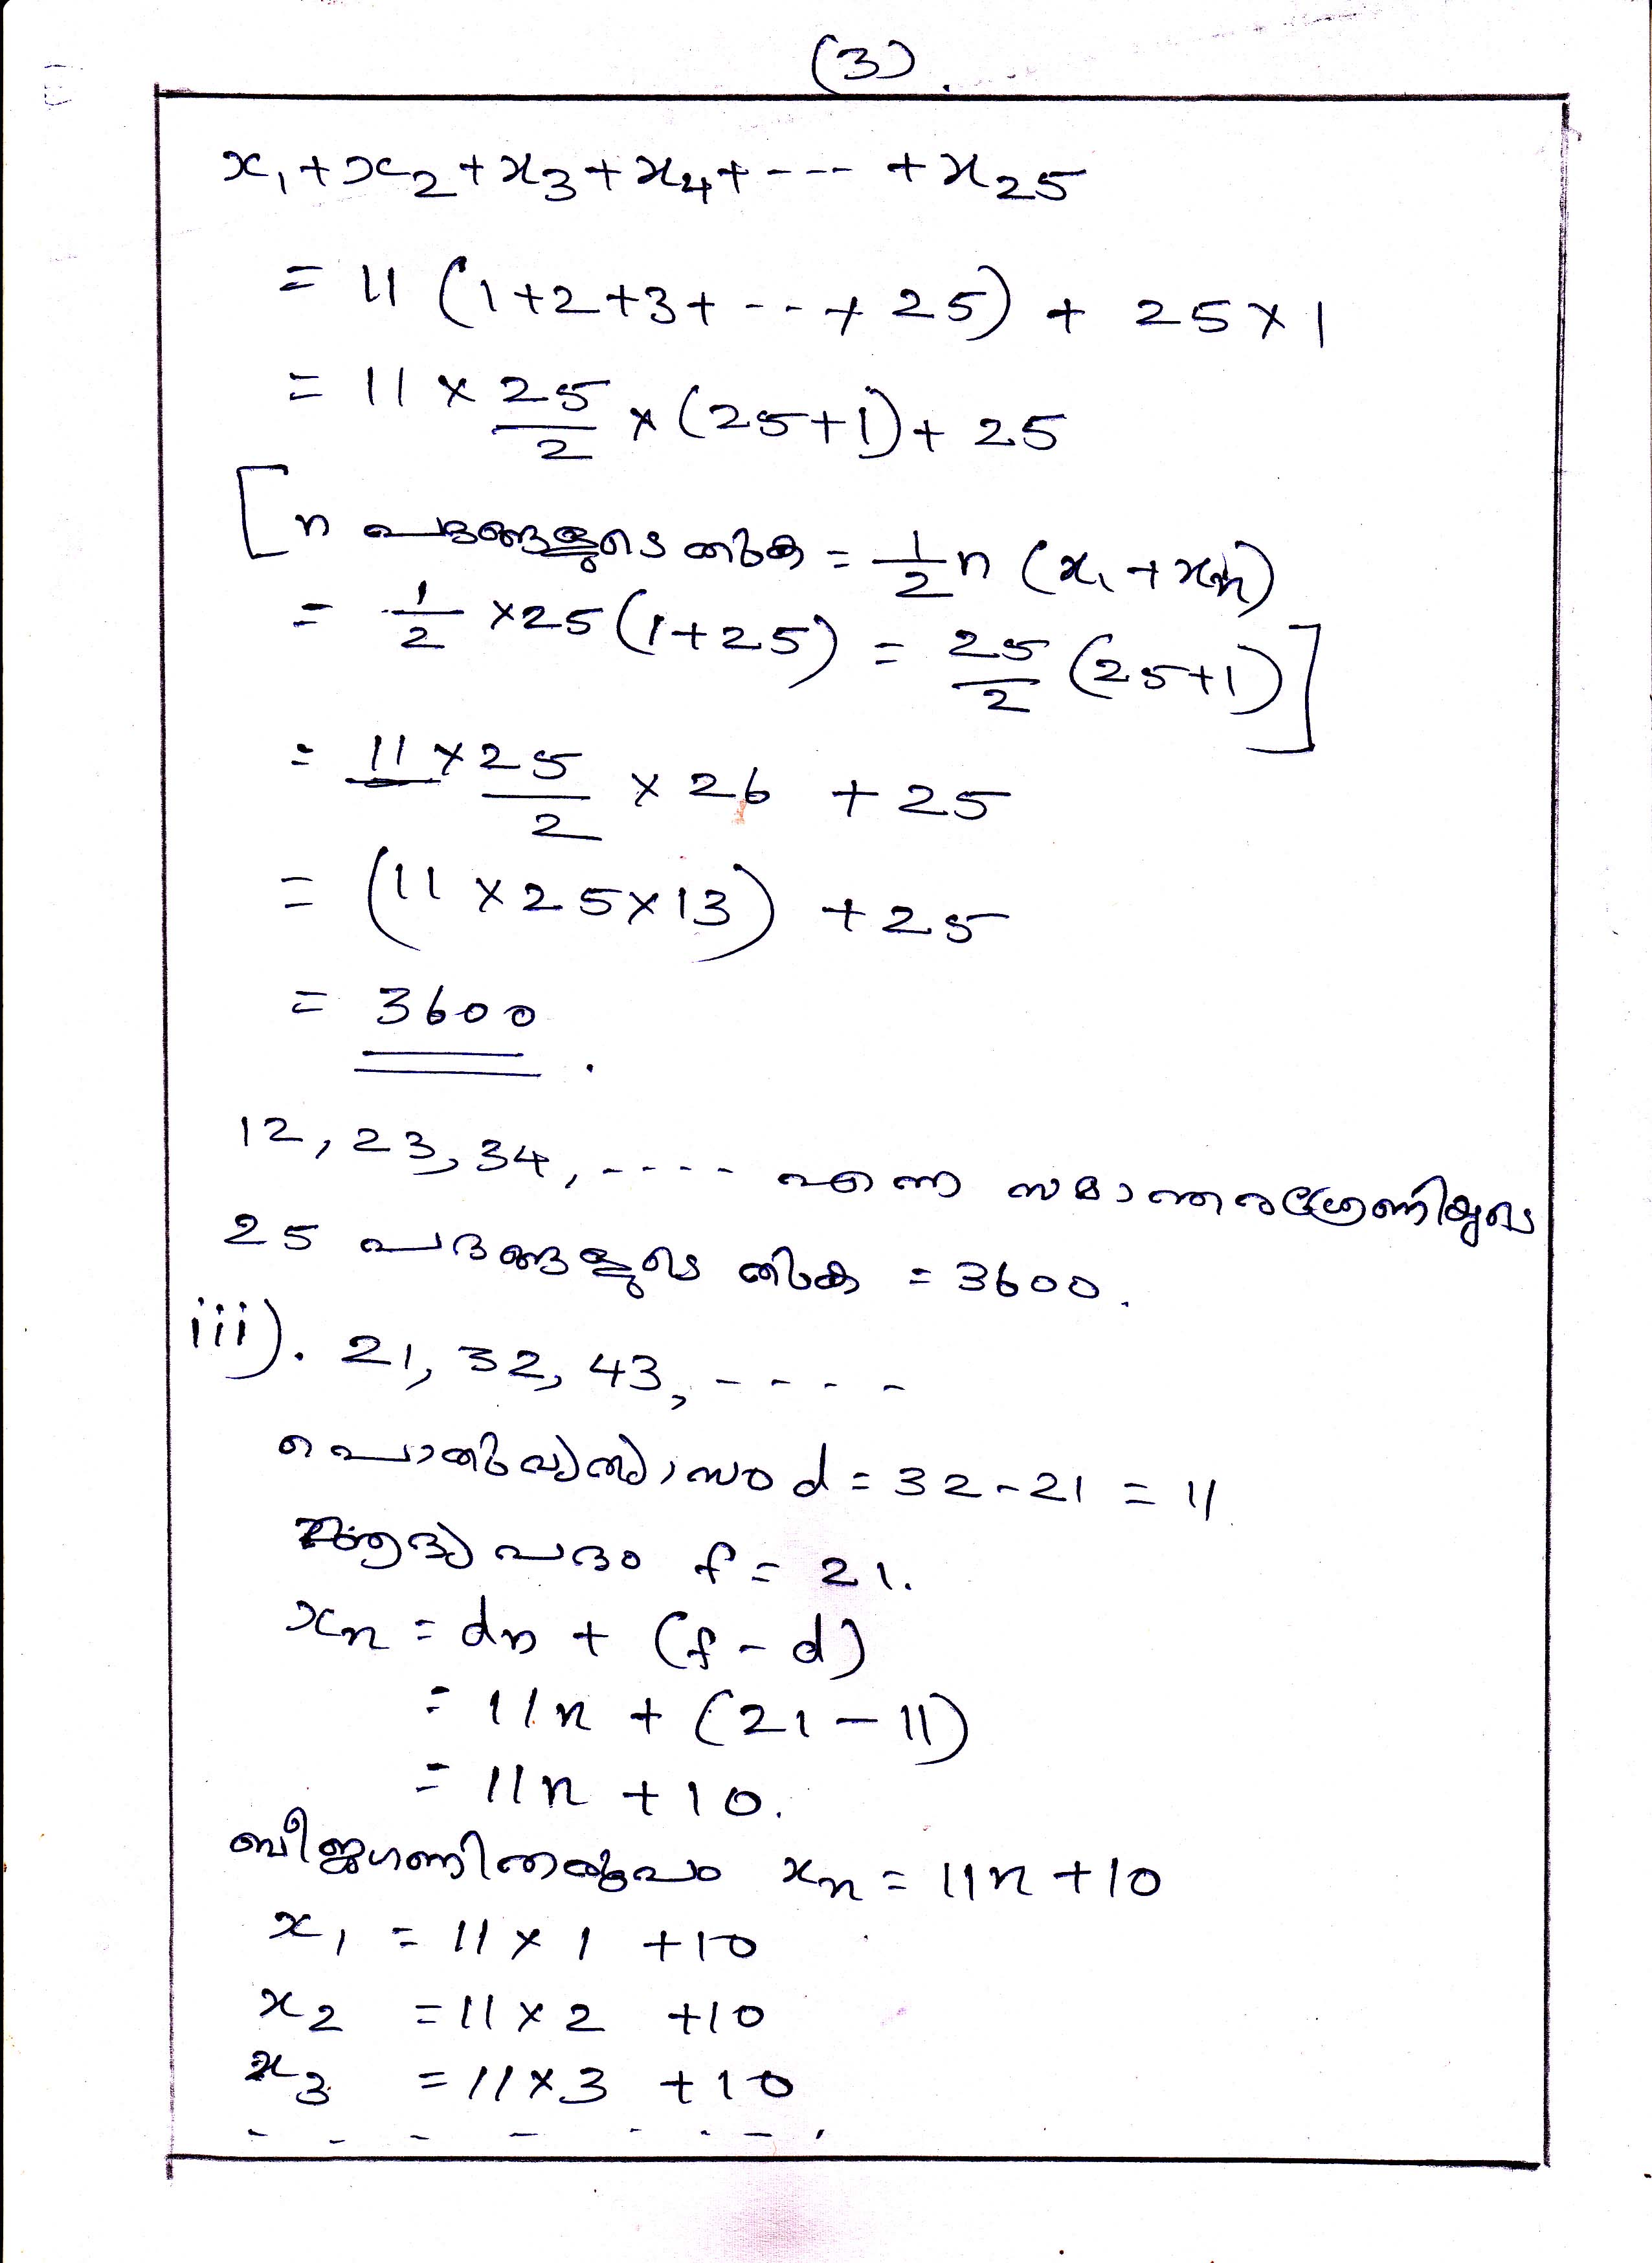 (3).
x₁+x₂+x₃+x₄+---+x₂₅
= 11 (1+2+3+--+25) + 25×1
= 11 × 25/2 × (25+1)+ 25
[n പദങ്ങളുടെ തുക = 1/2 n (x₁+xn)
= 1/2 ×25(1+25) = 25/2 (25+1)]
= 11×25/2 × 26 + 25
= (11×25×13) +25
= 3600.
12, 23, 34, ---- എന്ന സമാന്തരശ്രേണിയുടെ
25 പദങ്ങളുടെ തുക = 3600.
iii). 21, 32, 43, ----
പൊതുവ്യത്യാസം d = 32-21 = 11
ആദ്യ പദം f = 21.
xn = dn + (f-d)
= 11n + (21-11)
= 11n +10.
ബീജഗണിതരൂപം xn = 11n+10
x₁ = 11×1 +10
x₂ = 11×2 +10
x₃ = 11×3 +10
- - - - - - - ,